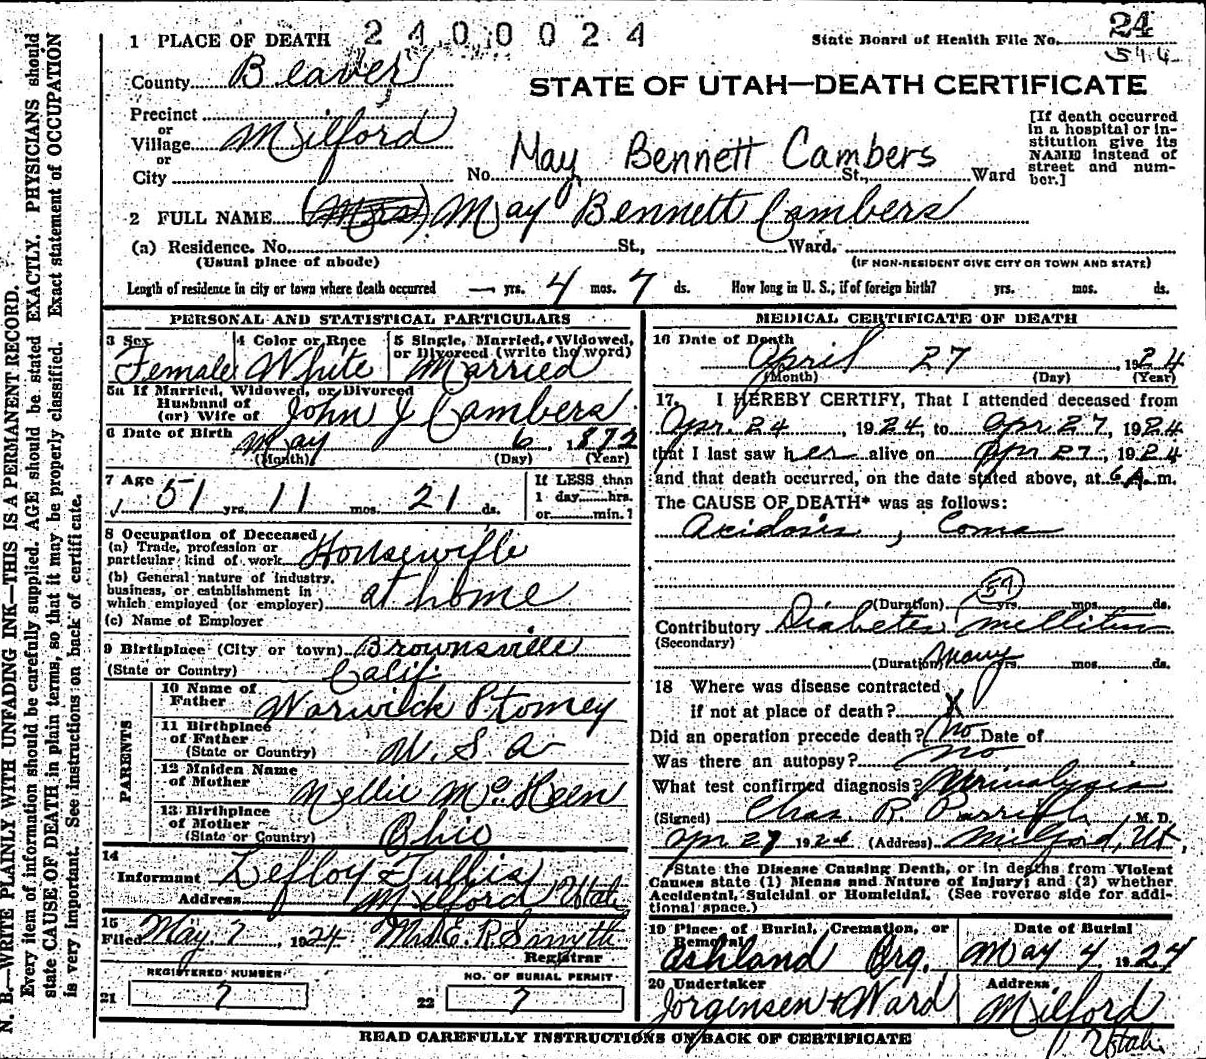 1 PLACE OF DEATH 2400024
State Board of Health File No. 24
544
County Beaver
STATE OF UTAH—DEATH CERTIFICATE
Precinct
or
Village Milford
or
City No. May Bennett Cambers St., Ward
[If death occurred
in a hospital or in-
stitution give its
NAME instead of
street and num-
ber.]
2 FULL NAME (Mrs) May Bennett Cambers
(a) Residence. No. St., Ward.
(Usual place of abode) (IF NON-RESIDENT GIVE CITY OR TOWN AND STATE)
Length of residence in city or town where death occurred — yrs. 4 mos. 7 ds. How long in U. S., if of foreign birth? yrs. mos. ds.
PERSONAL AND STATISTICAL PARTICULARS
3 Sex 4 Color or Race 5 Single, Married, Widowed,
or Divorced (write the word)
Female White Married
5a If Married, Widowed, or Divorced
Husband of
(or) Wife of John J Cambers
6 Date of Birth May 6, 1872
(Month) (Day) (Year)
7 Age 51 yrs. 11 mos. 21 ds.
If LESS than
1 day hrs.
or min.?
8 Occupation of Deceased
(a) Trade, profession or
particular kind of work Housewife
(b) General nature of industry,
business, or establishment in
which employed (or employer) at home
(c) Name of Employer
9 Birthplace (City or town) Brownsville
(State or Country) Calif.
PARENTS
10 Name of
Father Warwick
11 Birthplace
of Father
(State or Country) U. S. A
12 Maiden Name
of Mother Nellie
13 Birthplace
of Mother
(State or Country) Ohio
14
Informant LeRoy Tullis
Address Milford Utah
15
Filed May 7, 1924 Mrs E. R. Smyth
Registrar
REGISTERED NUMBER NO. OF BURIAL PERMIT
21 7 22 7
MEDICAL CERTIFICATE OF DEATH
16 Date of Death
April 27, 1924
(Month) (Day) (Year)
17. I HEREBY CERTIFY, That I attended deceased from
Apr. 24, 1924, to Apr. 27, 1924
that I last saw her alive on Apr 27, 1924
and that death occurred, on the date stated above, at 6 A. m.
The CAUSE OF DEATH* was as follows:
Acidosis, Coma
59
(Duration) yrs. mos. ds.
Contributory Diabetes mellitus
(Secondary)
(Duration) Many yrs. mos. ds.
18 Where was disease contracted
if not at place of death? X
Did an operation precede death? No Date of
Was there an autopsy? no
What test confirmed diagnosis? Urinalysis
(Signed) Chas. R. Parrish M. D.
Apr 27 1924 (Address) Milford, Ut.
*State the Disease Causing Death, or in deaths from Violent
Causes state (1) Means and Nature of Injury; and (2) whether
Accidental, Suicidal or Homicidal. (See reverse side for addi-
tional space.)
19 Place of Burial, Cremation, or
Removal
Ashland Org.
Date of Burial
May 4 1924
20 Undertaker
Jorgensen & Ward
Address
Milford
Utah
READ CAREFULLY INSTRUCTIONS ON BACK OF CERTIFICATE
N. B.—WRITE PLAINLY WITH UNFADING INK—THIS IS A PERMANENT RECORD.
Every item of information should be carefully supplied. AGE should be stated EXACTLY. PHYSICIANS should
state CAUSE OF DEATH in plain terms, so that it may be properly classified. Exact statement of OCCUPATION
is very important. See instructions on back of certificate.